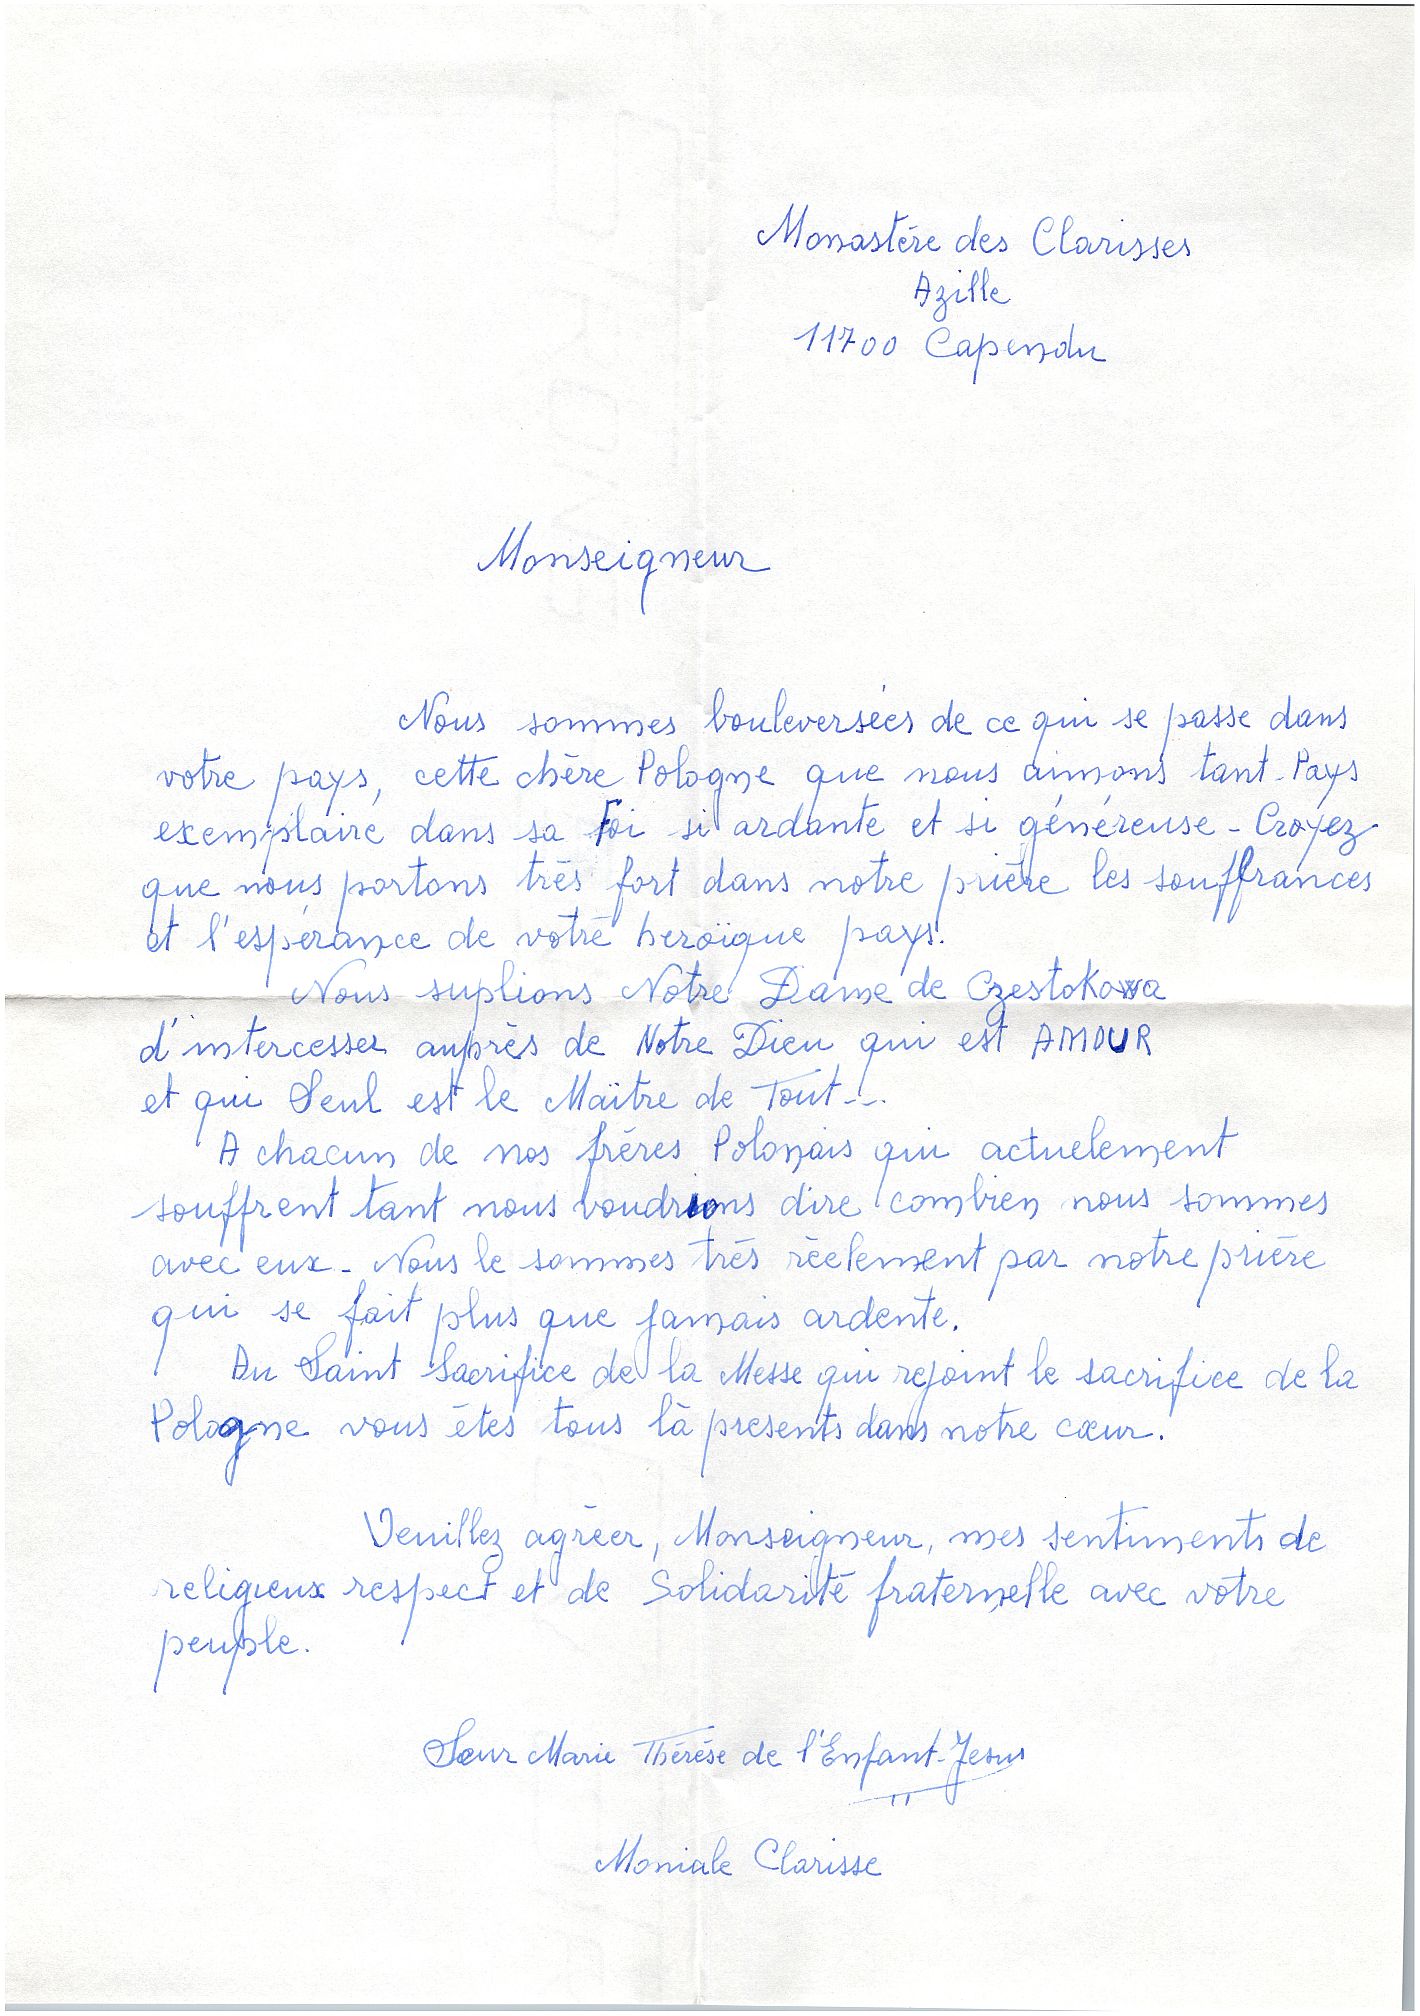 Monastère des Clarisses
Azille
11700 Capendu
Monseigneur
Nous sommes bouleversées de ce qui se passe dans
votre pays, cette chère Pologne que nous aimons tant - Pays
exemplaire dans sa Foi si ardante et si généreuse - Croyez
que nous portons très fort dans notre prière les souffrances
et l'espérance de votre heroïque pays.
Nous suplions Notre Dame de Czestokowa
d'intercesser auprès de Notre Dieu qui est AMOUR
et qui Seul est le Maître de Tout...
A chacun de nos frères Polonais qui actuelement
souffrent tant nous voudrions dire combien nous sommes
avec eux - Nous le sommes très réelement par notre prière
qui se fait plus que jamais ardente.
Au Saint Sacrifice de la Messe qui rejoint le sacrifice de la
Pologne vous êtes tous là presents dans notre cœur.
Veuillez agréer, Monseigneur, mes sentiments de
religieux respect et de Solidarité fraternelle avec votre
peuple.
Sœur Marie Thérèse de l'Enfant-Jesus
Moniale Clarisse